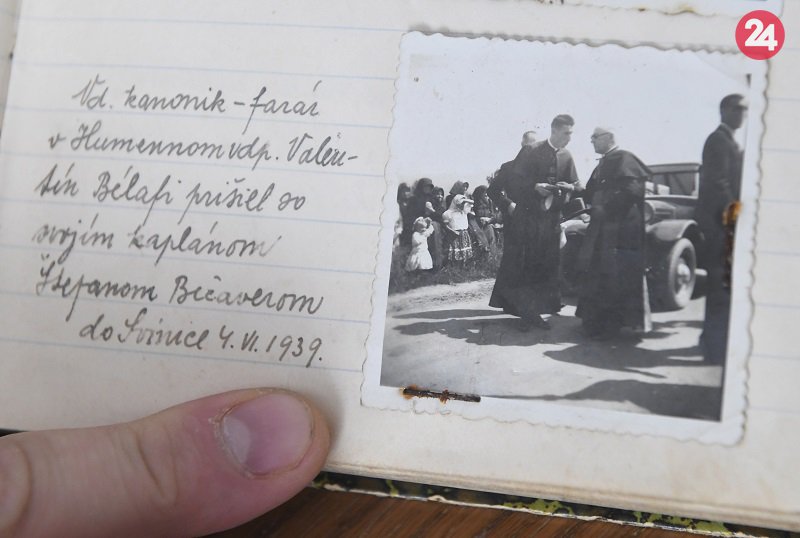 Vd. kanonik - farár
v Humennom vdp. Valen-
tín Bélafi prišiel so
svojím kaplánom
Štefanom Bičaverom
do Svinice 4. VI. 1939.
24